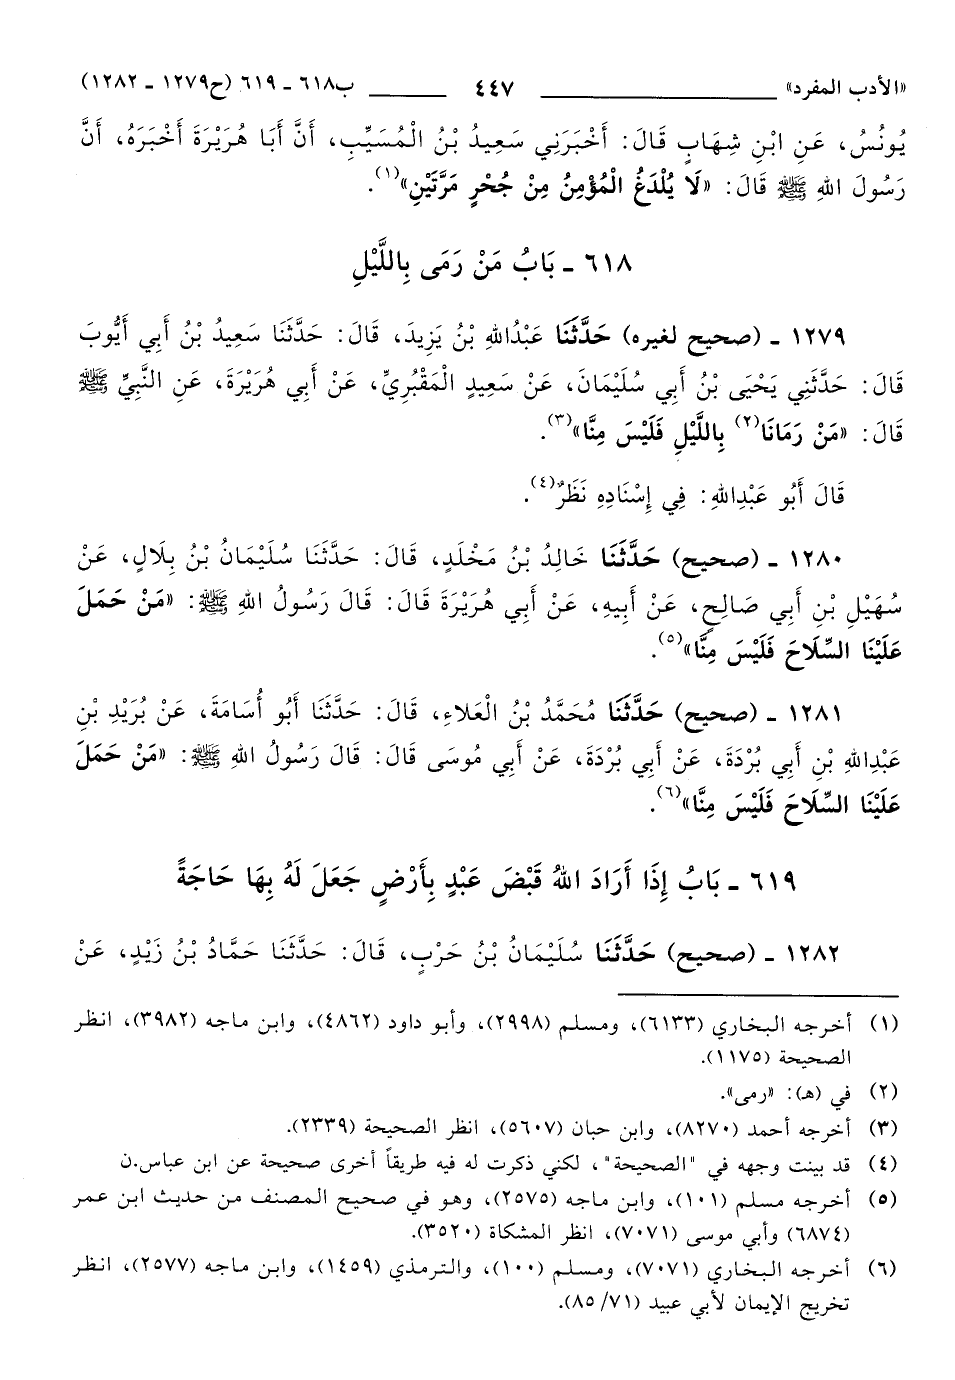 «الأدب المفرد» ٤٤٧ ب٦١٨ ـ ٦١٩ (ح١٢٧٩ ـ ١٢٨٢)
يُونُسُ، عَنِ ابْنِ شِهَابٍ قَالَ: أَخْبَرَنِي سَعِيدُ بْنُ الْمُسَيِّبِ، أَنَّ أَبَا هُرَيْرَةَ أَخْبَرَهُ، أَنَّ
رَسُولَ اللهِ ﷺ قَالَ: «لَا يُلْدَغُ الْمُؤْمِنُ مِنْ جُحْرٍ مَرَّتَيْنِ»(١).
٦١٨ ـ بَابُ مَنْ رَمَى بِاللَّيْلِ
١٢٧٩ ـ (صحيح لغيره) حَدَّثَنَا عَبْدُاللهِ بْنُ يَزِيدَ، قَالَ: حَدَّثَنَا سَعِيدُ بْنُ أَبِي أَيُّوبَ
قَالَ: حَدَّثَنِي يَحْيَى بْنُ أَبِي سُلَيْمَانَ، عَنْ سَعِيدٍ الْمَقْبُرِيِّ، عَنْ أَبِي هُرَيْرَةَ، عَنِ النَّبِيِّ ﷺ
قَالَ: «مَنْ رَمَانَا(٢) بِاللَّيْلِ فَلَيْسَ مِنَّا»(٣).
قَالَ أَبُو عَبْدِاللهِ: فِي إِسْنَادِهِ نَظَرٌ(٤).
١٢٨٠ ـ (صحيح) حَدَّثَنَا خَالِدُ بْنُ مَخْلَدٍ، قَالَ: حَدَّثَنَا سُلَيْمَانُ بْنُ بِلَالٍ، عَنْ
سُهَيْلِ بْنِ أَبِي صَالِحٍ، عَنْ أَبِيهِ، عَنْ أَبِي هُرَيْرَةَ قَالَ: قَالَ رَسُولُ اللهِ ﷺ: «مَنْ حَمَلَ
عَلَيْنَا السِّلَاحَ فَلَيْسَ مِنَّا»(٥).
١٢٨١ ـ (صحيح) حَدَّثَنَا مُحَمَّدُ بْنُ الْعَلاءِ، قَالَ: حَدَّثَنَا أَبُو أُسَامَةَ، عَنْ بُرَيْدِ بْنِ
عَبْدِاللهِ بْنِ أَبِي بُرْدَةَ، عَنْ أَبِي بُرْدَةَ، عَنْ أَبِي مُوسَى قَالَ: قَالَ رَسُولُ اللهِ ﷺ: «مَنْ حَمَلَ
عَلَيْنَا السِّلَاحَ فَلَيْسَ مِنَّا»(٦).
٦١٩ ـ بَابُ إِذَا أَرَادَ اللهُ قَبْضَ عَبْدٍ بِأَرْضٍ جَعَلَ لَهُ بِهَا حَاجَةً
١٢٨٢ ـ (صحيح) حَدَّثَنَا سُلَيْمَانُ بْنُ حَرْبٍ، قَالَ: حَدَّثَنَا حَمَّادُ بْنُ زَيْدٍ، عَنْ
(١) أخرجه البخاري (٦١٣٣)، ومسلم (٢٩٩٨)، وأبو داود (٤٨٦٢)، وابن ماجه (٣٩٨٢)، انظر
الصحيحة (١١٧٥).
(٢) في (هـ): «رمى».
(٣) أخرجه أحمد (٨٢٧٠)، وابن حبان (٥٦٠٧)، انظر الصحيحة (٢٣٣٩).
(٤) قد بينت وجهه في "الصحيحة"، لكني ذكرت له فيه طريقاً أخرى صحيحة عن ابن عباس.ن
(٥) أخرجه مسلم (١٠١)، وابن ماجه (٢٥٧٥)، وهو في صحيح المصنف من حديث ابن عمر
(٦٨٧٤) وأبي موسى (٧٠٧١)، انظر المشكاة (٣٥٢٠).
(٦) أخرجه البخاري (٧٠٧١)، ومسلم (١٠٠)، والترمذي (١٤٥٩)، وابن ماجه (٢٥٧٧)، انظر
تخريج الإيمان لأبي عبيد (٨٥/٧١).